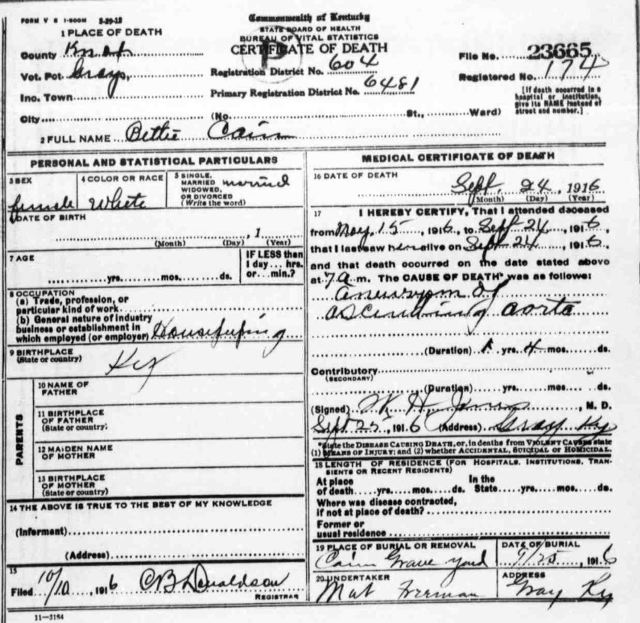 FORM V S 1-500M 3-29-12
Commonwealth of Kentucky
STATE BOARD OF HEALTH
BUREAU OF VITAL STATISTICS
CERTIFICATE OF DEATH
1 PLACE OF DEATH
County Knox
Vot. Pct. Grays
Inc. Town
City (No. St., Ward)
Registration District No. 604
Primary Registration District No. 6481
File No. 23665
Registered No. 174
[If death occurred in a
hospital or institution,
give its NAME instead of
street and number.]
2 FULL NAME Bettie Cain
PERSONAL AND STATISTICAL PARTICULARS
3 SEX
female
4 COLOR OR RACE
White
5 SINGLE,
MARRIED married
WIDOWED,
OR DIVORCED
(Write the word)
6 DATE OF BIRTH
, 1
(Month) (Day) (Year)
7 AGE
yrs. mos. ds.
IF LESS than
1 day... hrs.
or... min.?
8 OCCUPATION
(a) Trade, profession, or
particular kind of work
(b) General nature of industry
business or establishment in
which employed (or employer) Housekeeping
9 BIRTHPLACE
(State or country) Ky
PARENTS
10 NAME OF
FATHER
11 BIRTHPLACE
OF FATHER
(State or country)
12 MAIDEN NAME
OF MOTHER
13 BIRTHPLACE
OF MOTHER
(State or country)
14 THE ABOVE IS TRUE TO THE BEST OF MY KNOWLEDGE
(Informant)
(Address)
15
Filed 10/10, 1916 CB Donaldson
REGISTRAR
11-3184
MEDICAL CERTIFICATE OF DEATH
16 DATE OF DEATH
Sept. 24, 1916
(Month) (Day) (Year)
17 I HEREBY CERTIFY, That I attended deceased
from May 15, 1916, to Sept 24, 1916,
that I last saw her alive on Sept 24, 1916,
and that death occurred on the date stated above
at 7 a m. The CAUSE OF DEATH* was as follows:
aneurysm of
ascending aorta
(Duration) 1 yrs. 4 mos. ds.
Contributory
(SECONDARY)
(Duration) yrs. mos. ds.
(Signed) , M. D.
Sept. 25, 1916 (Address) Grays Ky
*State the DISEASE CAUSING DEATH, or, in deaths from VIOLENT CAUSES state
(1) MEANS OF INJURY; and (2) whether ACCIDENTAL, SUICIDAL or HOMICIDAL.
18 LENGTH OF RESIDENCE (FOR HOSPITALS, INSTITUTIONS, TRAN-
SIENTS OR RECENT RESIDENTS)
At place In the
of death yrs. mos. ds. State yrs. mos. ds.
Where was disease contracted,
if not at place of death?
Former or
usual residence
19 PLACE OF BURIAL OR REMOVAL
Cain Grave yard
DATE OF BURIAL
9/25, 1916
20 UNDERTAKER
Mat Freeman
ADDRESS
Gray Ky